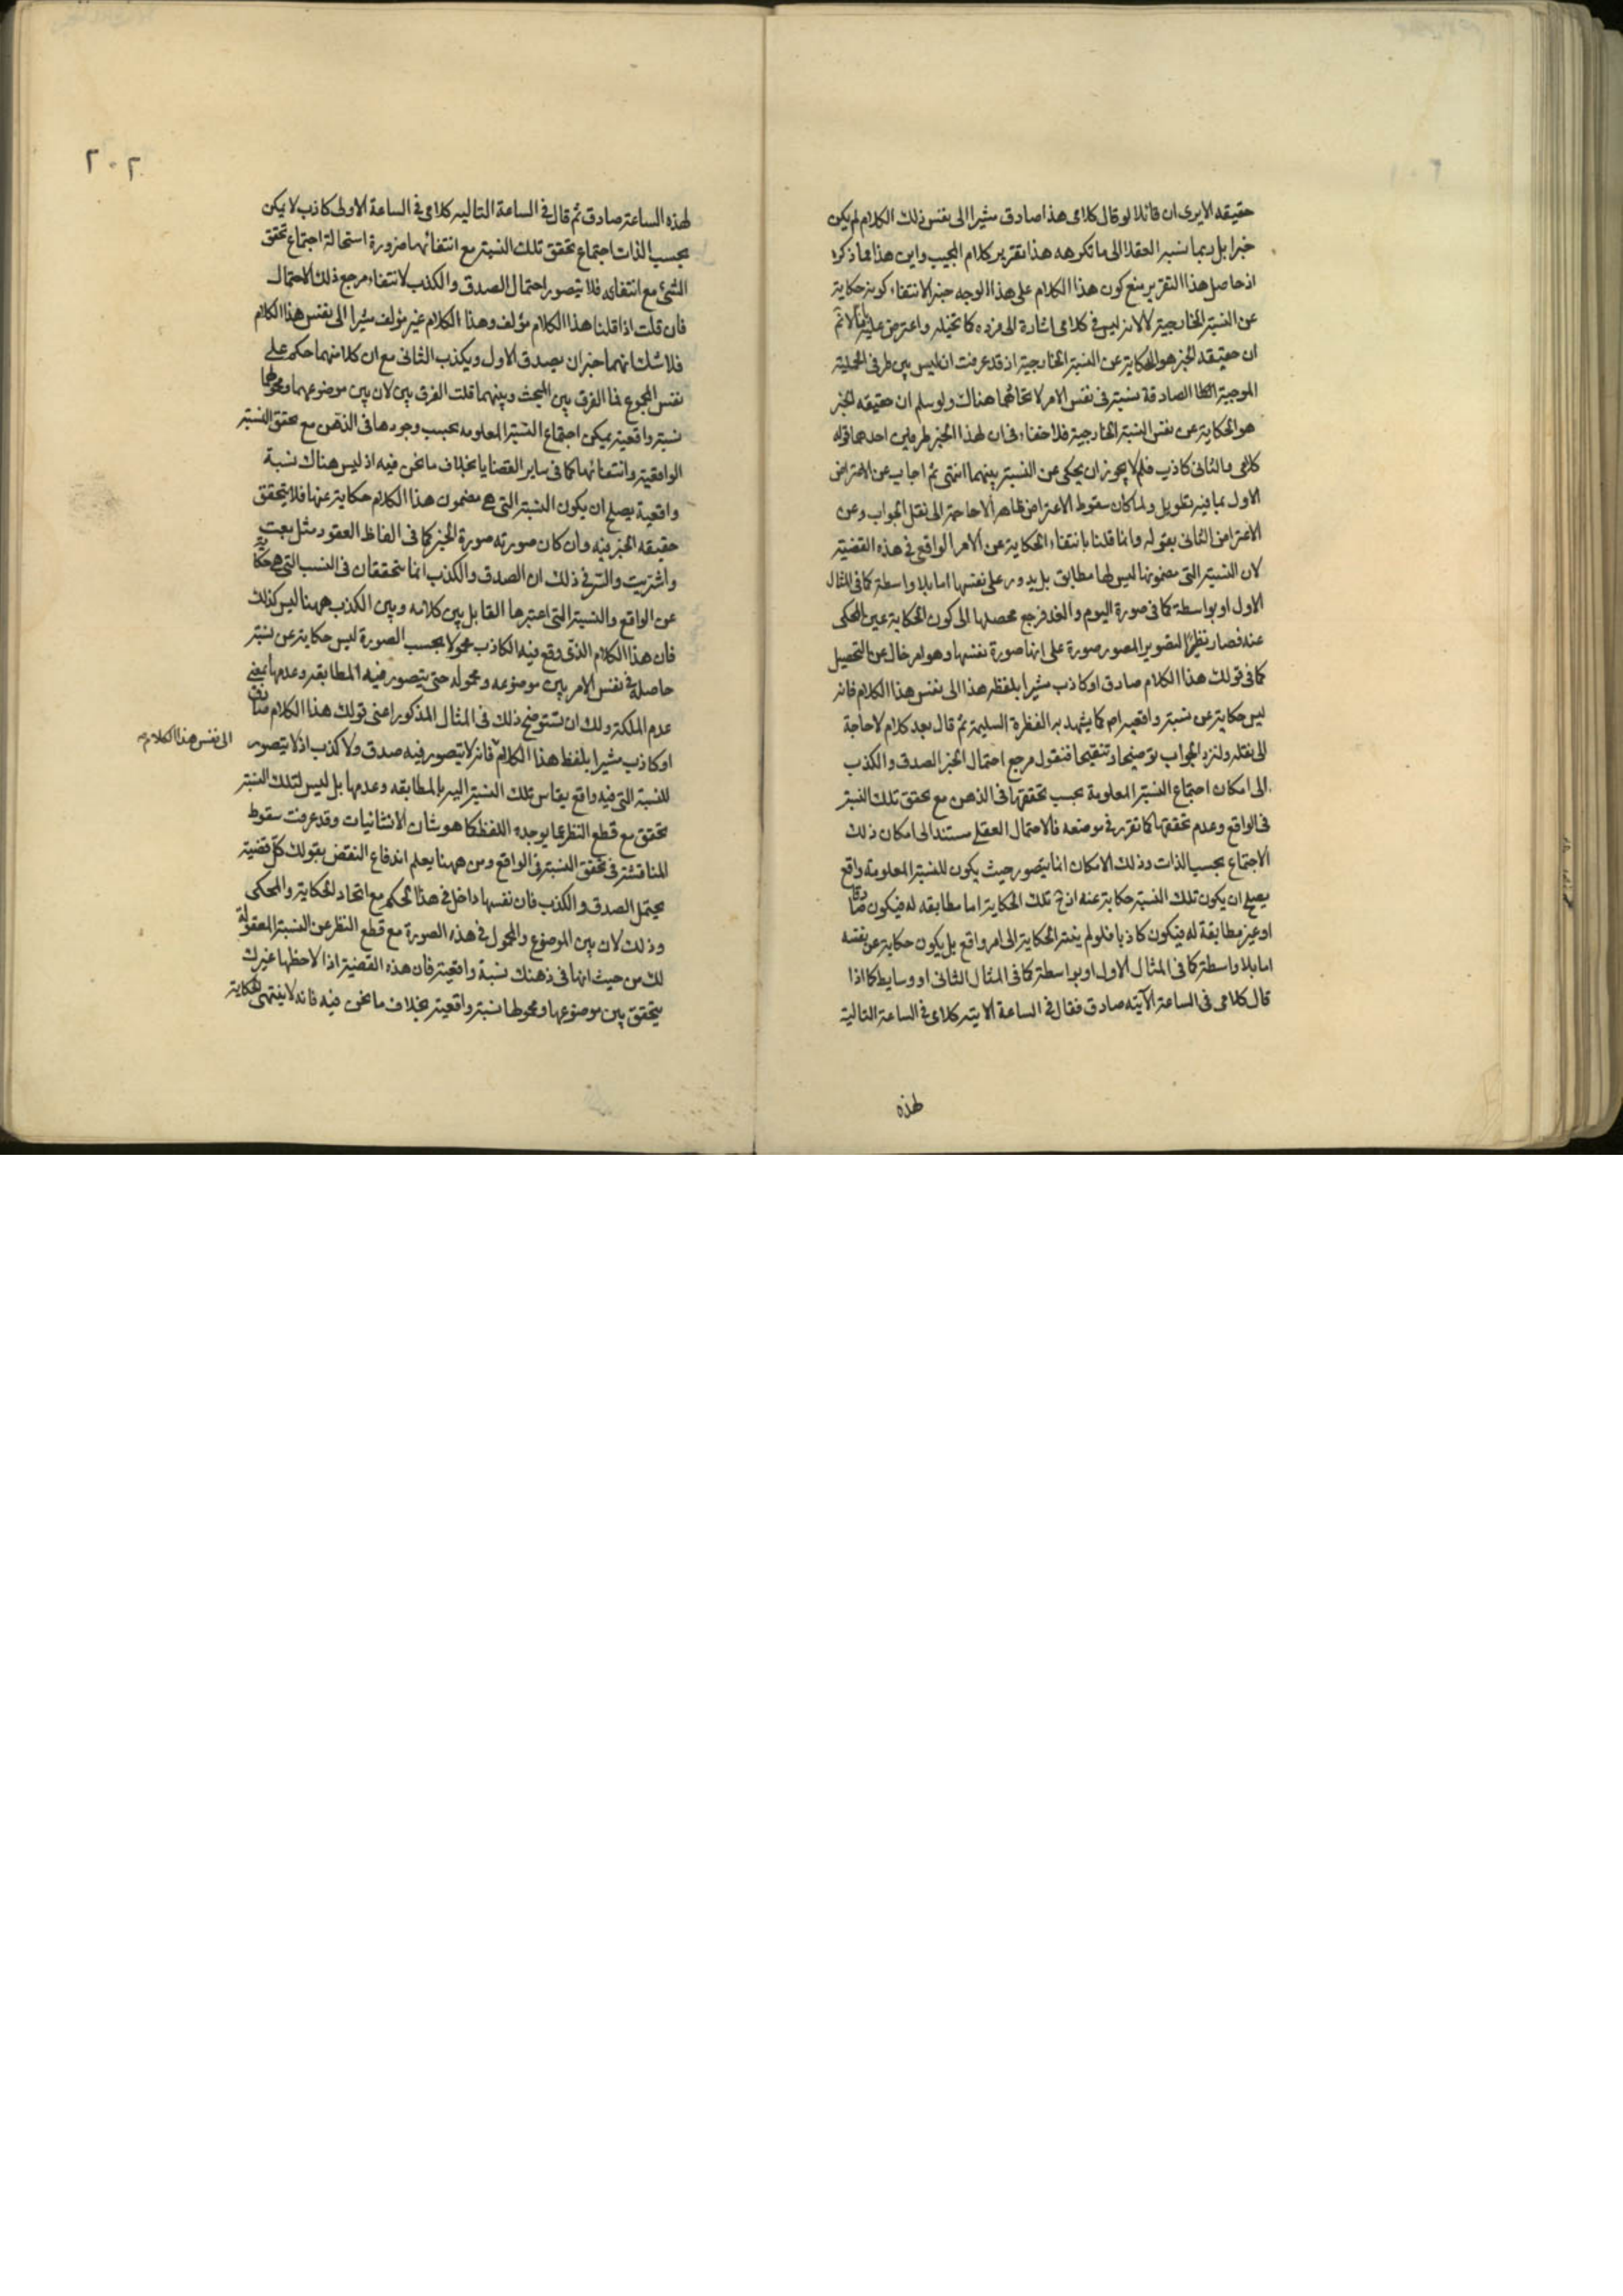 حقيقه الا يرى ان قائلا لو قال كلامى هذا صادق مشيرا الى نفس ذلك الكلام لم يكن
خبرا بل ربما نسبه العقلا الى ما تكرهه هذا تقرير كلام المجيب واين هذا مما ذكره
اذ حاصل هذا التقرير منع كون هذا الكلام على هذا الوجه خبرا لانتفاء كونه حكاية
عن النسبة الخارجية لا لانه ليس فى كلامى اشارة الى فرده كا تخيله واعترض عليه لانا لا ثم
ان حقيقه الخبر هو الحكاية عن النسبة الخارجية اذ قد عرفت انه ليس بين طرفى الحملية
الموجبة الصادقة نسبة فى نفس الامر لاتحادهما هناك ولو سلم ان حقيقه الخبر
هو الحكاية عن نفس النسبة الخارجية فلا خفاء فى ان لهذا الخبر طرفين احدهما قوله
كلامى والثانى كاذب فلم لا يجوز ان يحكى عن النسبة بينهما انتهى ثم اجاب عن الاعتراض
الاول بما فيه تطويل ولما كان سقوط الاعتراض ظاهرا لا حاجة الى نقل الجواب وعن
الاعتراض الثانى بقوله وانما قلنا بانتفاء الحكاية عن الامر الواقع فى هذه القضية
لان النسبة التى مضمونها ليس لها مطابق بل يدور على نفسها اما بلا واسطة كما فى المثال
الاول او بواسطة كما فى صورة اليوم والغد فرجع محصلها الى كون الحكاية عين المحكى
عنه فصار نظيرا لتصوير المصور صورة على انها صورة نفسها وهو امر خال عن التحصيل
كما فى قولك هذا الكلام صادق او كاذب مشيرا بلفظه هذا الى نفس هذا الكلام فانه
ليس حكاية عن نسبة واقعية ام كما يشهد به الفطرة السليمة ثم قال بعد كلام لا حاجة
الى نقله ولنزد الجواب توضيحا وتنقيحا فنقول مرجع احتمال الخبر الصدق والكذب
الى امكان اجتماع النسبة المعلومة بحسب تحققها فى الذهن مع تحقق تلك النسبة
فى الواقع وعدم تحققها كما تقرر فى موضعه فالاحتمال العقلى مستند الى امكان ذلك
الاجتماع بحسب الذات وذلك الامكان انما يتصور حيث يكون للنسبة المعلومة واقع
يصلح ان يكون تلك النسبة حكاية عنه اذ ح تلك الحكاية اما مطابقه له فيكون صادقا
او غير مطابقة له فيكون كاذبا فلو لم ينته الحكاية الى امر واقع بل يكون حكاية عن نفسه
اما بلا واسطة كما فى المثال الاول او بواسطة كما فى المثال الثانى او وسايط كما اذا
قال كلامى فى الساعة الآتيه صادق فقال فى الساعة الاتيه كلامى فى الساعة التالية
لهذه
٢٠٢
لهذه الساعة صادق ثم قال فى الساعة التاليه كلامى فى الساعة الاولى كاذب لا يمكن
بحسب الذات اجتماع تحقق تلك النسبة مع انتفائها ضرورة استحالة اجتماع تحقق
الشئ مع انتفائه فلا يتصور احتمال الصدق والكذب لانتفاء مرجع ذلك الاحتمال
فان قلت اذا قلنا هذا الكلام مؤلف وهذا الكلام غير مؤلف مشيرا الى نفس هذا الكلام
فلا شك انهما خبران يصدق الاول ويكذب الثانى مع ان كلا منهما حكم على
نفس المجموع فما الفرق بين المبحث وبينهما قلت الفرق بين لان بين موضوعهما ومحولهما
نسبة واقعية يمكن اجتماع النسبة المعلومه بحسب وجودها فى الذهن مع تحقق النسبة
الواقعية وانتفائها كما فى ساير القضايا بخلاف ما نحن فيه اذ ليس هناك نسبة
واقعية يصلح ان يكون النسبة التى هى مضمون هذا الكلام حكاية عنها فلا يتحقق
حقيقه الخبر فيه وان كان صورته صورة الخبر كما فى الفاظ العقود مثل بعت
واشتريت والسر فى ذلك ان الصدق والكذب انما يتحققان فى النسب التى هى حكاية
عن الواقع والنسبة التى اعتبرها القايل بين كلامه وبين الكذب ههنا ليس كذلك
فان هذا الكلام الذى وقع فيه الكاذب محمولا بحسب الصورة ليس حكاية عن نسبة
حاصلة فى نفس الامر بين موضوعه ومحموله حتى يتصور فيه المطابقه وعدمها بمعنى
عدم الملكة ولك ان تستوضح ذلك فى المثال المذكور اعنى قولك هذا الكلام صادق
او كاذب مشيرا بلفظ هذا الكلام فانه لا يتصور فيه صدق ولا كذب اذ لا يتصور
الى نفس هذا الكلام صح
للنسبة التى فيه واقع يقاس تلك النسبة اليه بالمطابقه وعدمها بل ليس لتلك النسبة
تحقق مع قطع النظر عما يوجده اللفظ كما هو شان الانشائيات وقد عرفت سقوط
المناقشة فى تحقق النسبة فى الواقع ومن ههنا يعلم اندفاع النقض بقولك كل قضية
يحتمل الصدق والكذب فان نفسها داخل فى هذا الحكم مع اتحاد الحكاية والمحكى
وذلك لان بين الموضوع والمحمول فى هذه الصورة مع قطع النظر عن النسبة المعقولة
لك من حيث انها فى ذهنك نسبة واقعية فان هذه القضية اذا لاحظها غيرك
يتحقق بين موضوعها ومحمولها نسبة واقعية بخلاف ما نحن فيه فانه لا ينتهى الحكاية